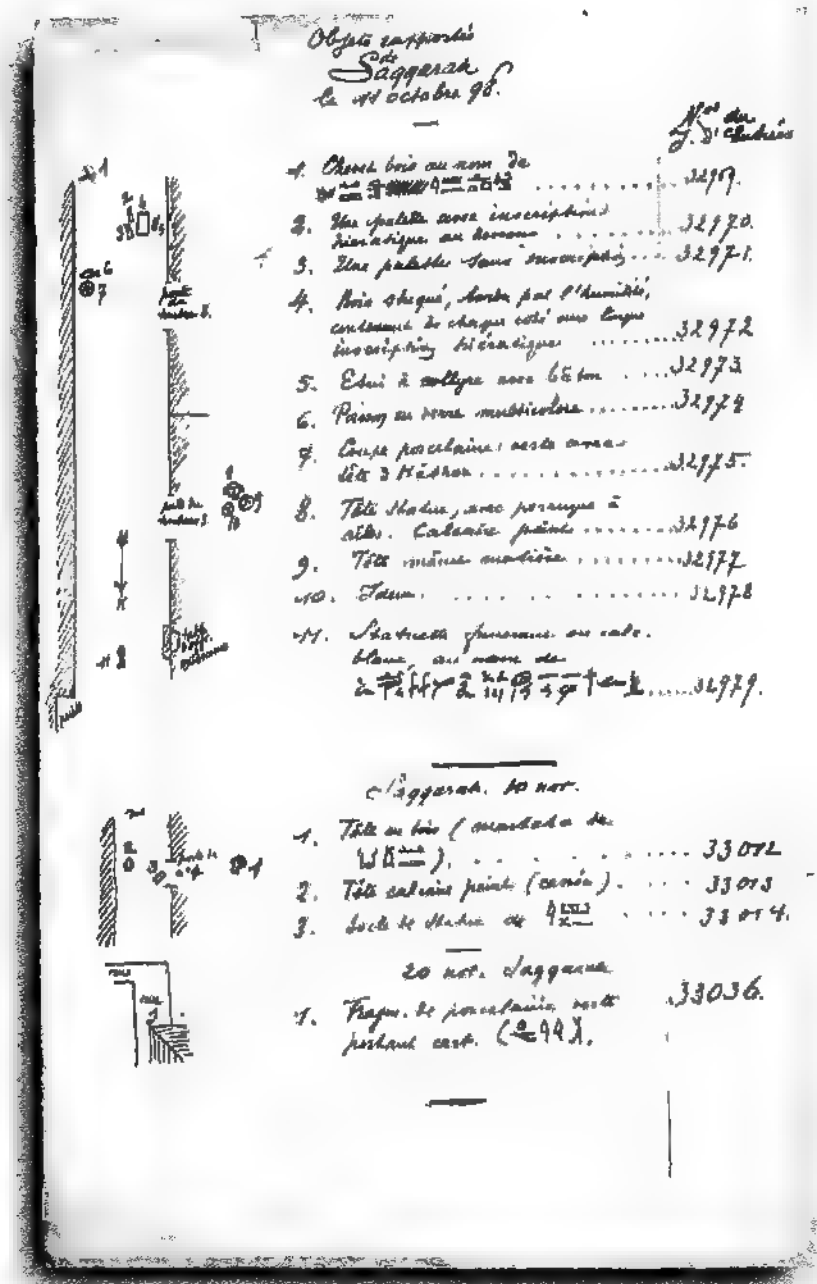 Objets rapportés
de
Saqqarah
le 11 octobre 98.
Nos du
J. d'entrée
1. Chevet bois au nom de
32969.
2. Une palette avec inscriptions
hiératique au verso 32970.
3. Une palette sans inscription 32971.
4. Bois stuqué, par l'humidité,
contenant de chaque côté une longue
inscription hiératique 32972
5. Etui à collyre avec bâton 32973
6. Poisson en verre multicolore 32974
7. Coupe porcelaine verte avec
tête d'Hathor 32975.
8. Tête statue, avec perruque à
ailes. Calcaire peint 32976
9. Tête même matière 32977
10. Idem. 32978
11. Statuette funéraire en calc.
blanc, au nom de
32979.
porte du
porte du
table
d'off.
puits
N
1
2
3
4
5
6
7
8
9
10
11
Saqqarah. 10 nov.
1. Tête en bois (mastaba de
). 33012
2. Tête calcaire peint (cassée). 33013
3. Socle de statue de 33014.
porte de
20 nov. Saqqarah
1. Fragm. de porcelaine verte 33036.
portant cart.